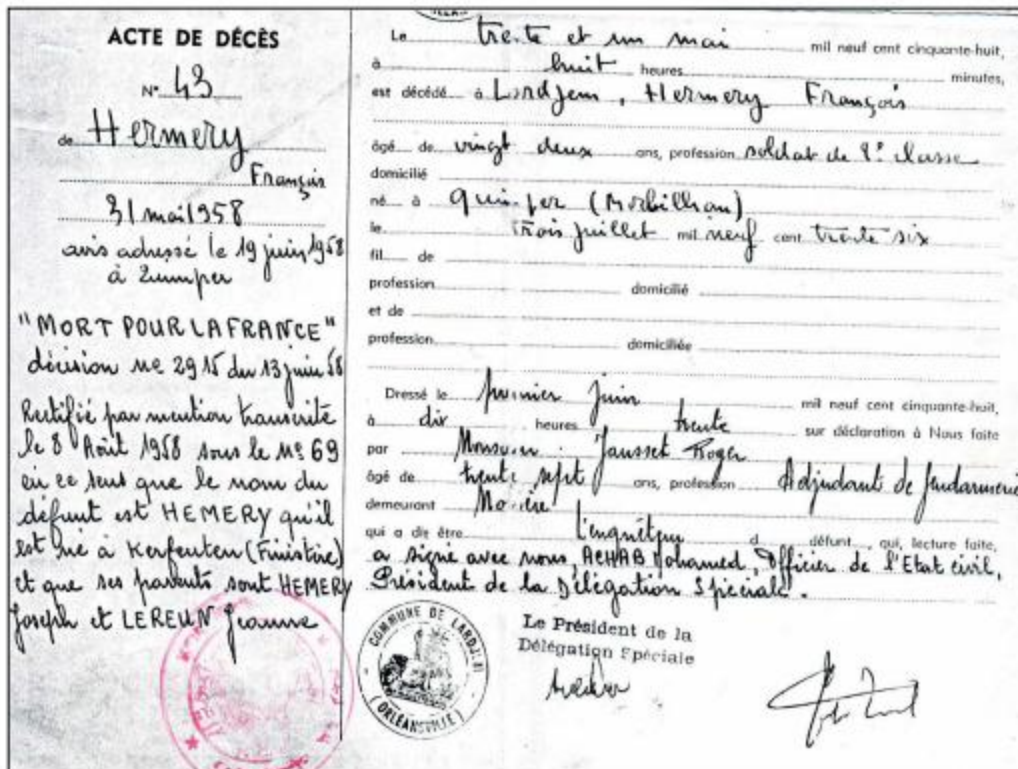 ACTE DE DÉCÈS
N° 43
de Hermery
François
31 mai 1958
avis adressé le 19 juin 1958
à Quimper
"MORT POUR LA FRANCE"
décision ne 29 15 du 13 juin 58
Rectifié par mention transcrite
le 8 Août 1958 sous le N° 69
en ce sens que le nom du
défunt est HEMERY qu'il
est né à Kerfeuten (Finistère)
et que ses parents sont HEMERY
Joseph et LEREUN Jeanne
Le trente et un mai mil neuf cent cinquante-huit,
à huit heures minutes,
est décédé à Lardjem, Hermery François
âgé de vingt deux ans, profession soldat de 1° classe
domicilié
né à Quimper (Morbilhan)
le trois juillet mil neuf cent trente six
fil de
profession domicilié
et de
profession domiciliée
Dressé le premier juin mil neuf cent cinquante-huit,
à dix heures trente sur déclaration à Nous faite
par Monsieur Jausset Roger
âgé de trente sept ans, profession Adjudant de gendarmerie
demeurant
qui a dit être L'enquêteur d défunt, qui, lecture faite,
a signé avec nous, ACHAB Mohamed, Officier de l'Etat civil,
Président de la Délégation Spéciale.
COMMUNE DE LARDJEM
(ORLÉANSVILLE)
Le Président de la
Délégation Spéciale